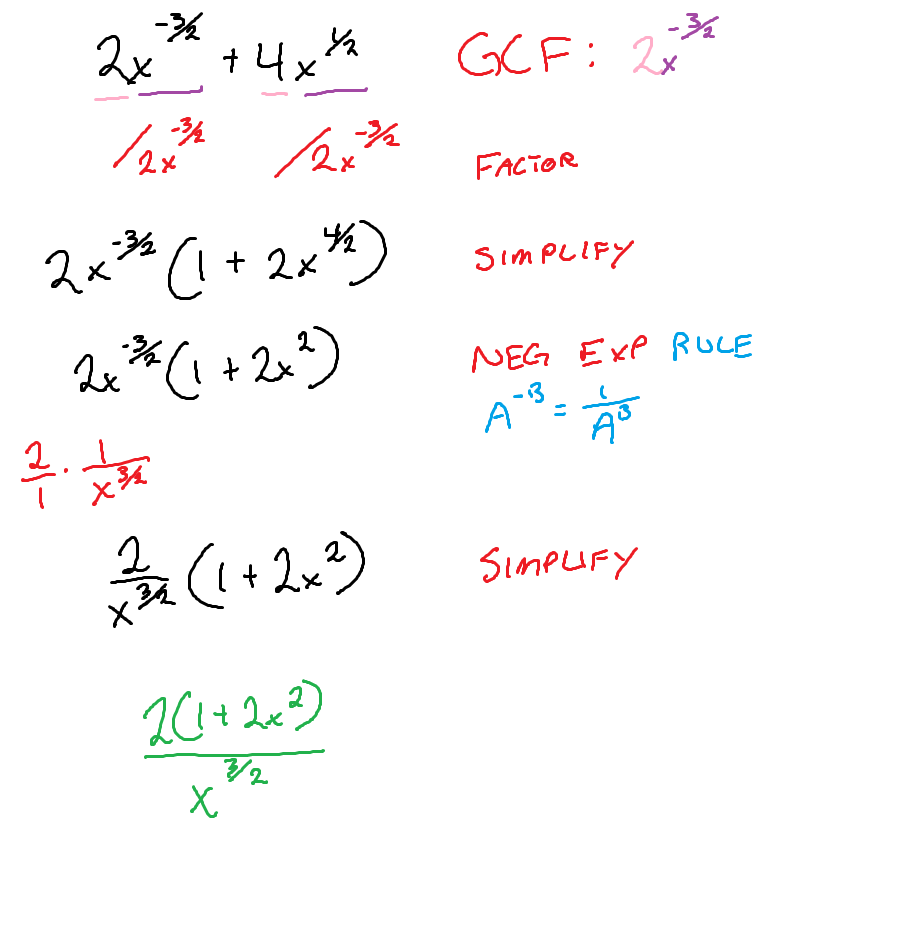 2x^{-3/2} + 4x^{1/2} GCF: 2x^{-3/2}
/2x^{-3/2} /2x^{-3/2} FACTOR
2x^{-3/2} (1 + 2x^{4/2}) SIMPLIFY
2x^{-3/2} (1 + 2x^2) NEG EXP RULE
A^{-B} = 1/A^B
2/1 · 1/x^{3/2}
2/x^{3/2} (1 + 2x^2) SIMPLIFY
2(1 + 2x^2)
x^{3/2}